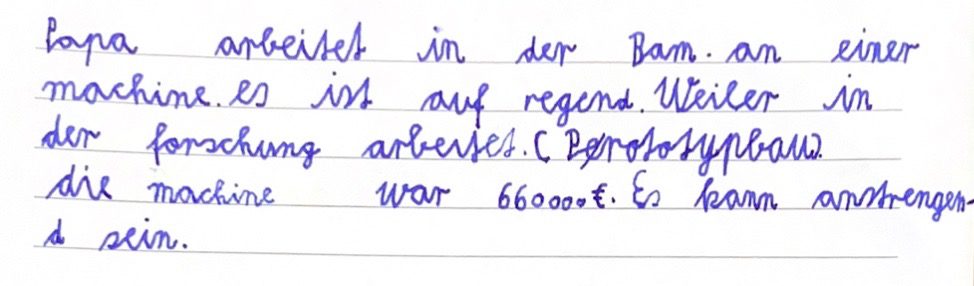 Papa arbeitet in der Bam. an einer
machine. es ist auf regend. Weiler in
der forschung arbeitet. (Prototypbau).
die machine war 660000€. Es kann anstrengen-
d sein.